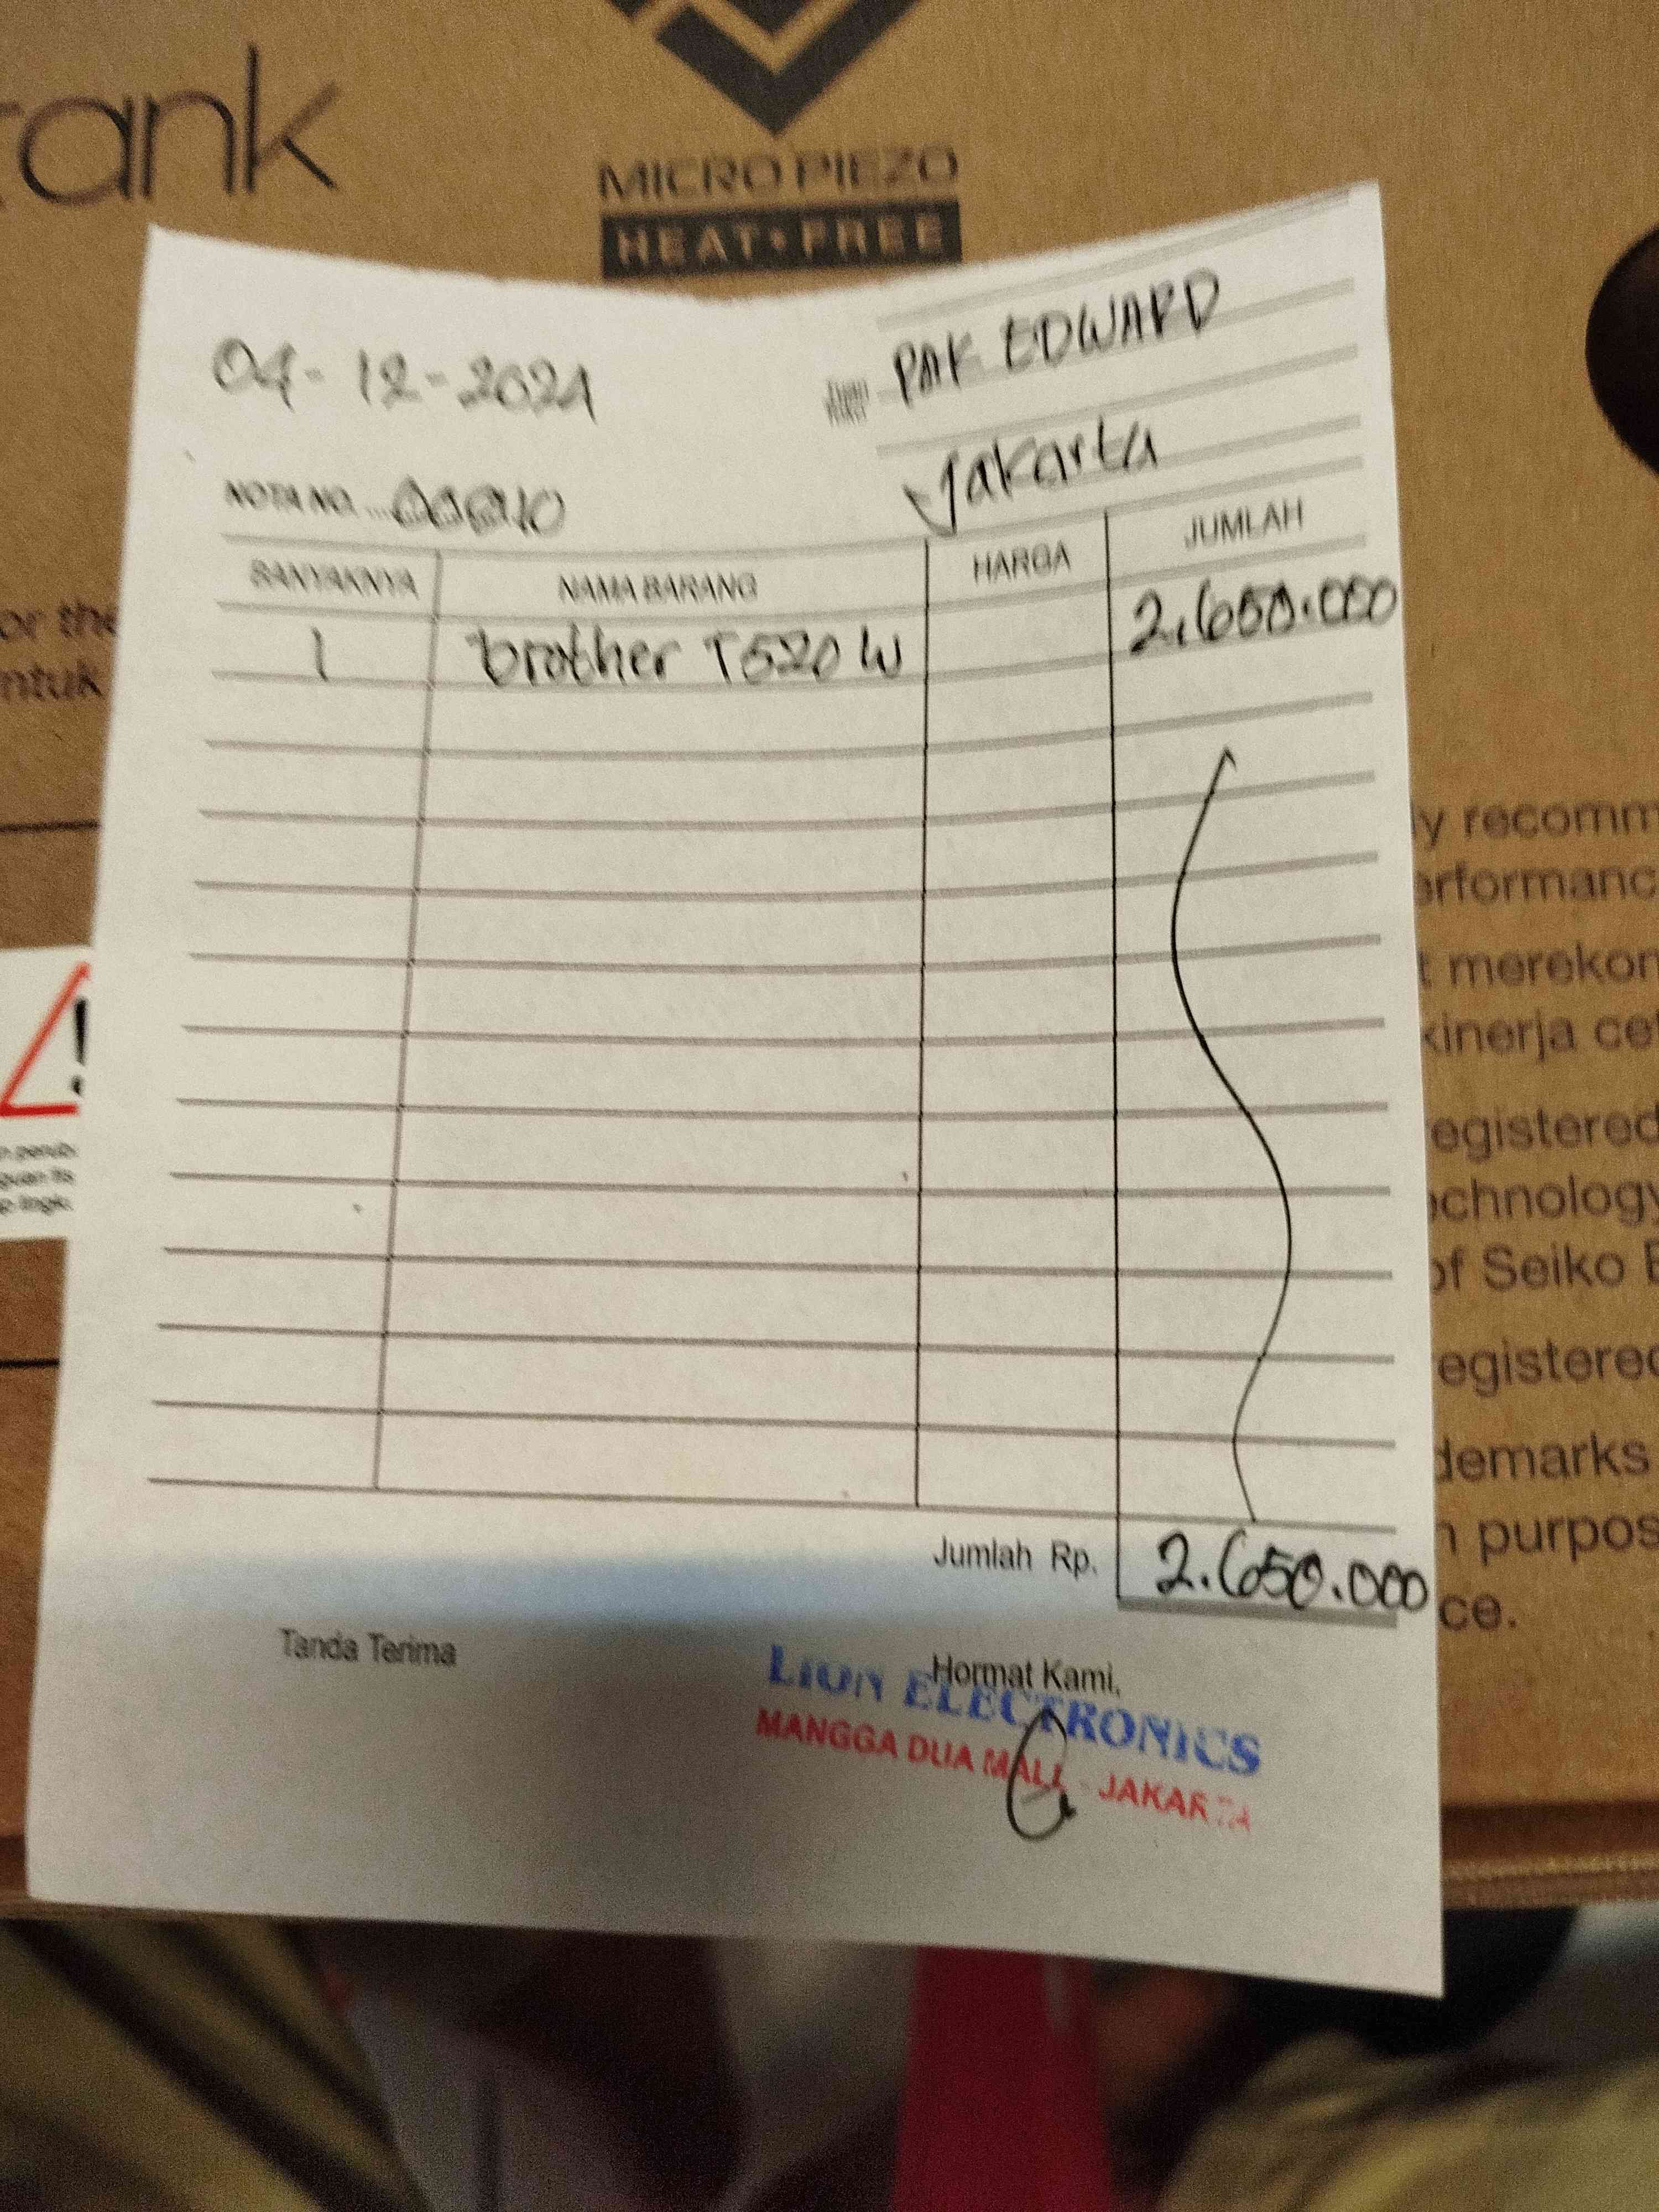 tank
MICRO PIEZO
HEAT-FREE
04-12-2024
Tuan
Toko
PAK EDWARD
Jakarta
NOTA NO.
BANYAKNYA NAMA BARANG HARGA JUMLAH
1 brother T520 W 2.650.000
Jumlah Rp. 2.650.000
Tanda Terima Hormat Kami,
LION ELECTRONICS
MANGGA DUA MALL - JAKARTA
or the
ntuk
!
y recomm
erformanc
t merekon
kinerja cet
egistered
echnology
of Seiko E
egistered
demarks
n purpos
ce.